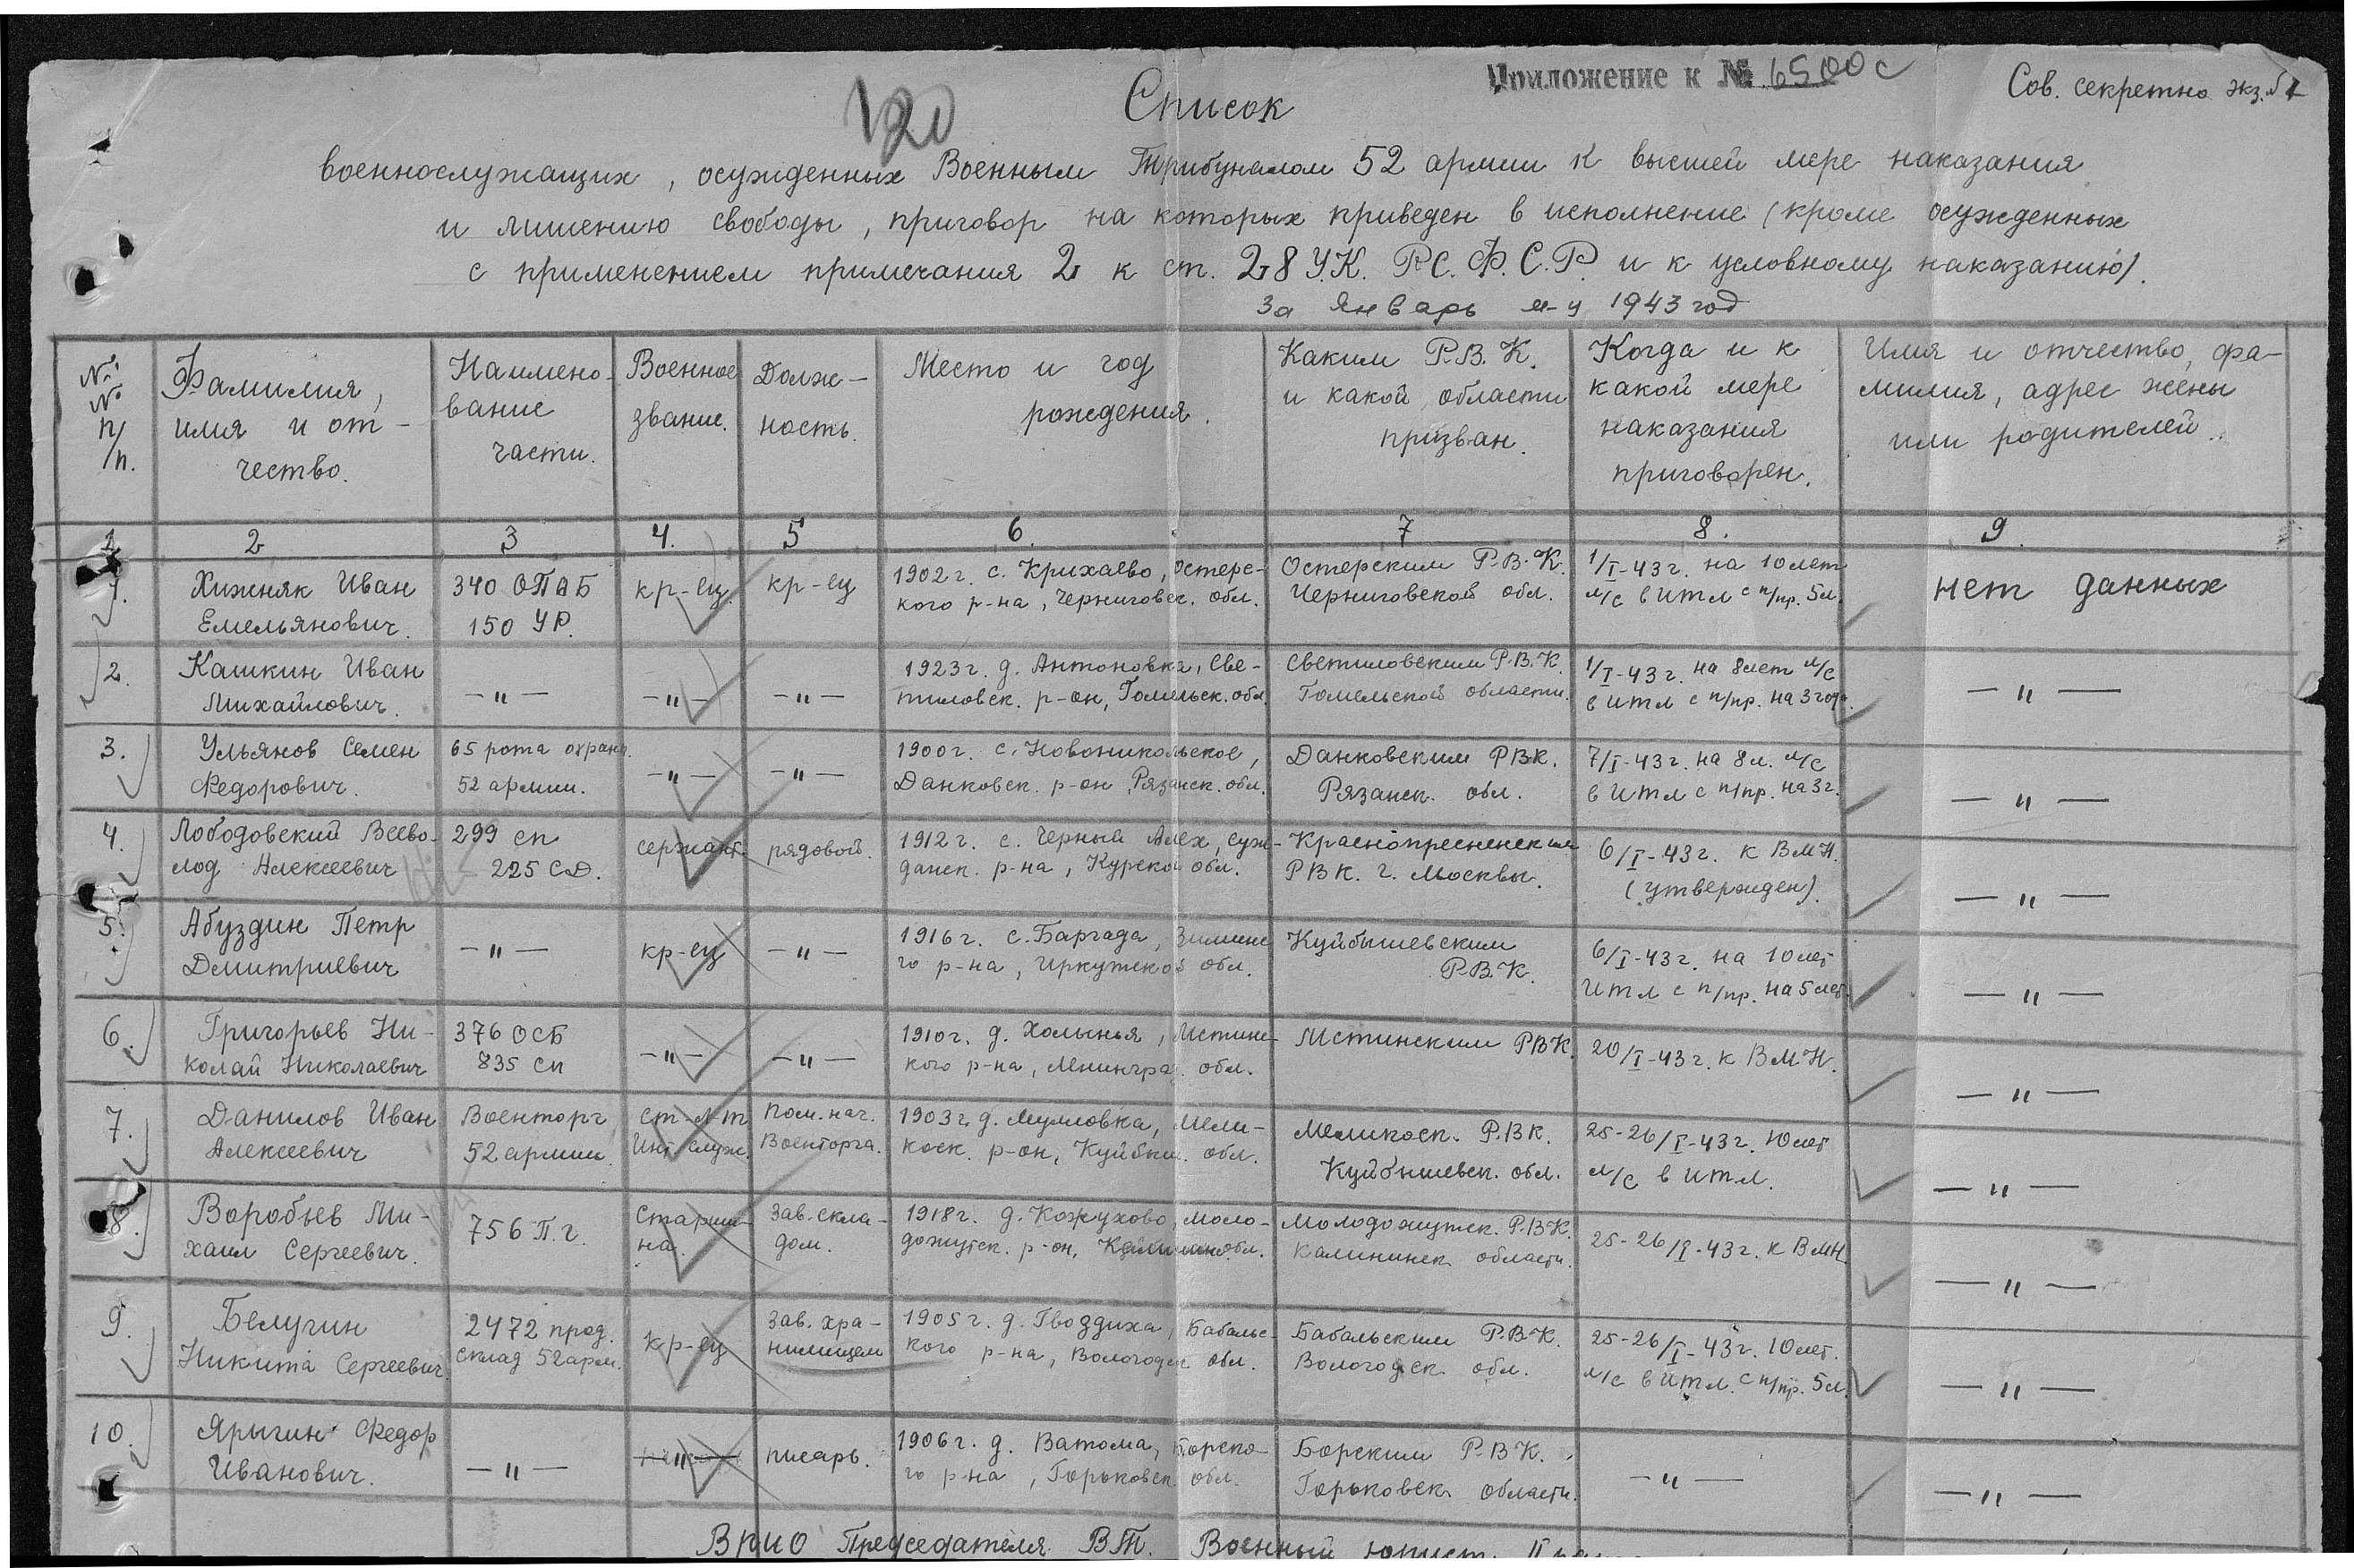 Приложение к № 6500с
Сов. секретно экз. №1
120
Список
военнослужащих, осужденных Военным Трибуналом 52 армии к высшей мере наказания
и лишению свободы, приговор на которых приведен в исполнение (кроме осужденных
с применением примечания 2 к ст. 28 У.К. Р.С.Ф.С.Р. и к условному наказанию).
За Январь м-ц 1943 год
№ № п/п.
Фамилия, имя и от-чество.
Наимено-вание части.
Военное звание.
Долж-ность.
Место и год рождения.
Каким Р.В.К. и какой области призван.
Когда и к какой мере наказания приговорен.
Имя и отчество, фа-милия, адрес жены или родителей.
1 2 3 4. 5 6. 7 8. 9.
1. Хижняк Иван 340 ОПАБ кр-ец. кр-ец 1902 г. с. Крихаево, Остерс- Остерским Р.В.К. 1/I-43 г. на 10 лет нет данных
Емельянович. 150 УР. кого р-на, Черниговск. обл. Черниговской обл. л/с в ИТЛ с п/пр. 5 л.
2. Кашкин Иван —"— —"— —"— 1923 г. д. Антоновка, Све- Светиловским Р.В.К. 1/I-43 г. на 8 лет л/с —"—
Михайлович. тиловск. р-он, Гомельск. обл. Гомельской области. в ИТЛ с п/пр. на 3 года.
3. Ульянов Семен 65 рота охраны —"— —"— 1900 г. с. Новоникольское, Данковским РВК. 7/I-43 г. на 8 л. л/с —"—
Федорович. 52 армии. Данковск. р-он, Рязанск. обл. Рязанск. обл. в ИТЛ с п/пр. на 3 г.
4. Лободовский Всево- 299 сп сержант. рядовой. 1912 г. с. Черный Олех, Суд- Краснопресненским 6/I-43 г. к ВМН. —"—
лод Алексеевич 225 СД. данск. р-на, Курской обл. РВК. г. Москвы. (утвержден).
5. Абуздин Петр —"— кр-ец —"— 1916 г. с. Баргада, Зиминс Куйбышевским 6/I-43 г. на 10 лет —"—
Дмитриевич го р-на, Иркутской обл. Р.В.К. ИТЛ с п/пр. на 5 лет.
6. Григорьев Ни- 376 ОСБ —"— —"— 1910 г. д. Холынья, Мстинс- Мстинским РВК. 20/I-43 г. к ВМН. —"—
колай Николаевич 835 сп кого р-на, Ленинград. обл.
7. Данилов Иван Военторг ст. л-т Пом. нач. 1903 г. д. Мулловка, Мели- Меликеск. Р.В.К. 25-26/I-43 г. 10 лет —"—
Алексеевич 52 армии Инт. служ. Военторга. кеск. р-он, Куйбыш. обл. Куйбышевск. обл. л/с в ИТЛ.
8. Воробьев Ми- 756 П.г. Старши- Зав. скла- 1918г. д. Кожухово, Моло- Молодотутск. Р.В.К. 25-26/I-43 г. к ВМН —"—
хаил Сергеевич. на. дом. дотутск. р-он, Калининск. обл. Калининск области.
9. Белугин 2472 прод. кр-ец Зав. хра- 1905 г. д. Гвоздиха, Бабаьс- Бабальским Р.В.К. 25-26/I-43 г. 10 лет. —"—
Никита Сергеевич. склад 52 арм. нилищем кого р-на, Вологодск обл. Вологодск обл. л/с в ИТЛ. с п/пр. 5 л.
10. Ярыгин Федор —"— —"— писарь. 1906 г. д. Ватома, Борско- Борским Р.В.К. —"— —"—
Иванович. го р-на, Горьковск обл. Горьковск области.
Врио Председателя ВТ. Военный юрист